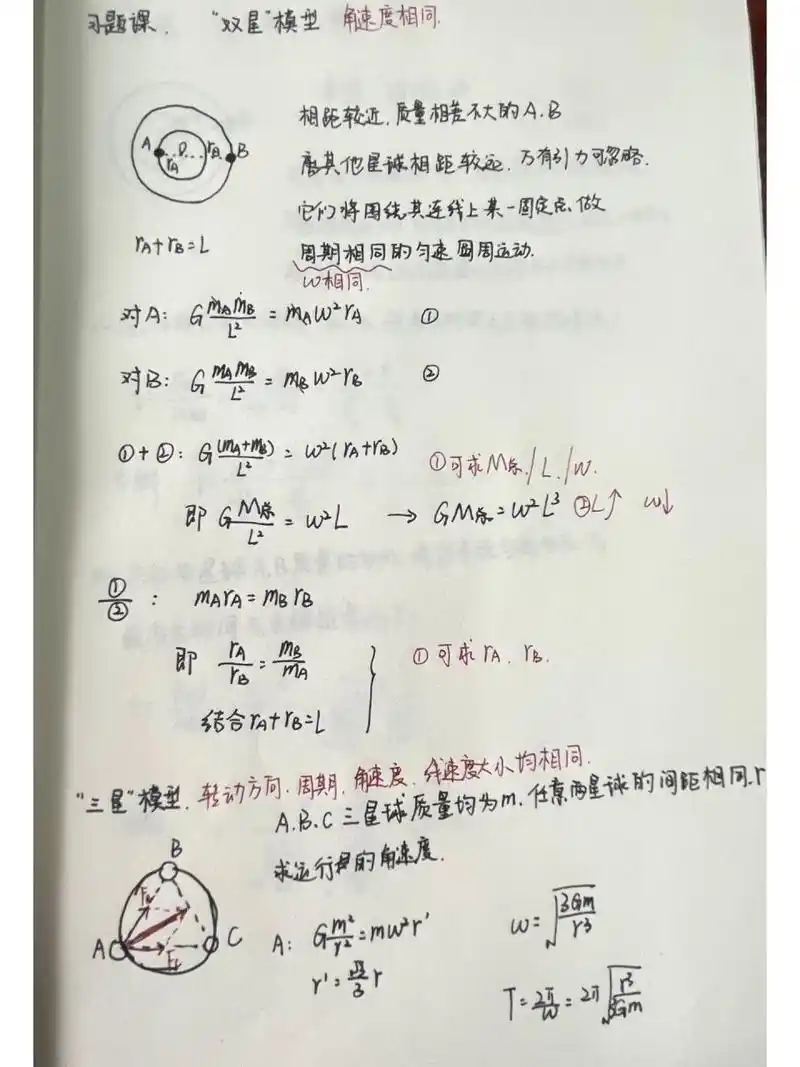 习题课. "双星"模型 角速度相同.
相距较近,质量相差不大的A.B
A B
r_A r_B
离其他星球相距较远,万有引力可忽略.
它们将围绕其连线上某一固定点做
r_A+r_B=L 周期相同的匀速圆周运动.
ω相同.
对A: G m_A m_B/L² = m_A ω² r_A ①
对B: G m_A m_B/L² = m_B ω² r_B ②
①+②: G (m_A+m_B)/L² = ω²(r_A+r_B) ①可求M总/L./ω.
即 G M总/L² = ω²L → GM总=ω²L³ ②L↑ ω↓
①/②: m_A r_A = m_B r_B
即 r_A/r_B = m_B/m_A ①可求r_A. r_B.
结合r_A+r_B=L
"三星"模型. 转动方向.周期.角速度.线速度大小均相同.
A.B.C三星球质量均为m.任意两星球的间距相同.r
求运行的角速度.
B
A C
A: G m²/r² = mω²r' ω=√(3Gm/r³)
r'=√3/3 r
T=2π/ω=2π√(r³/3Gm)